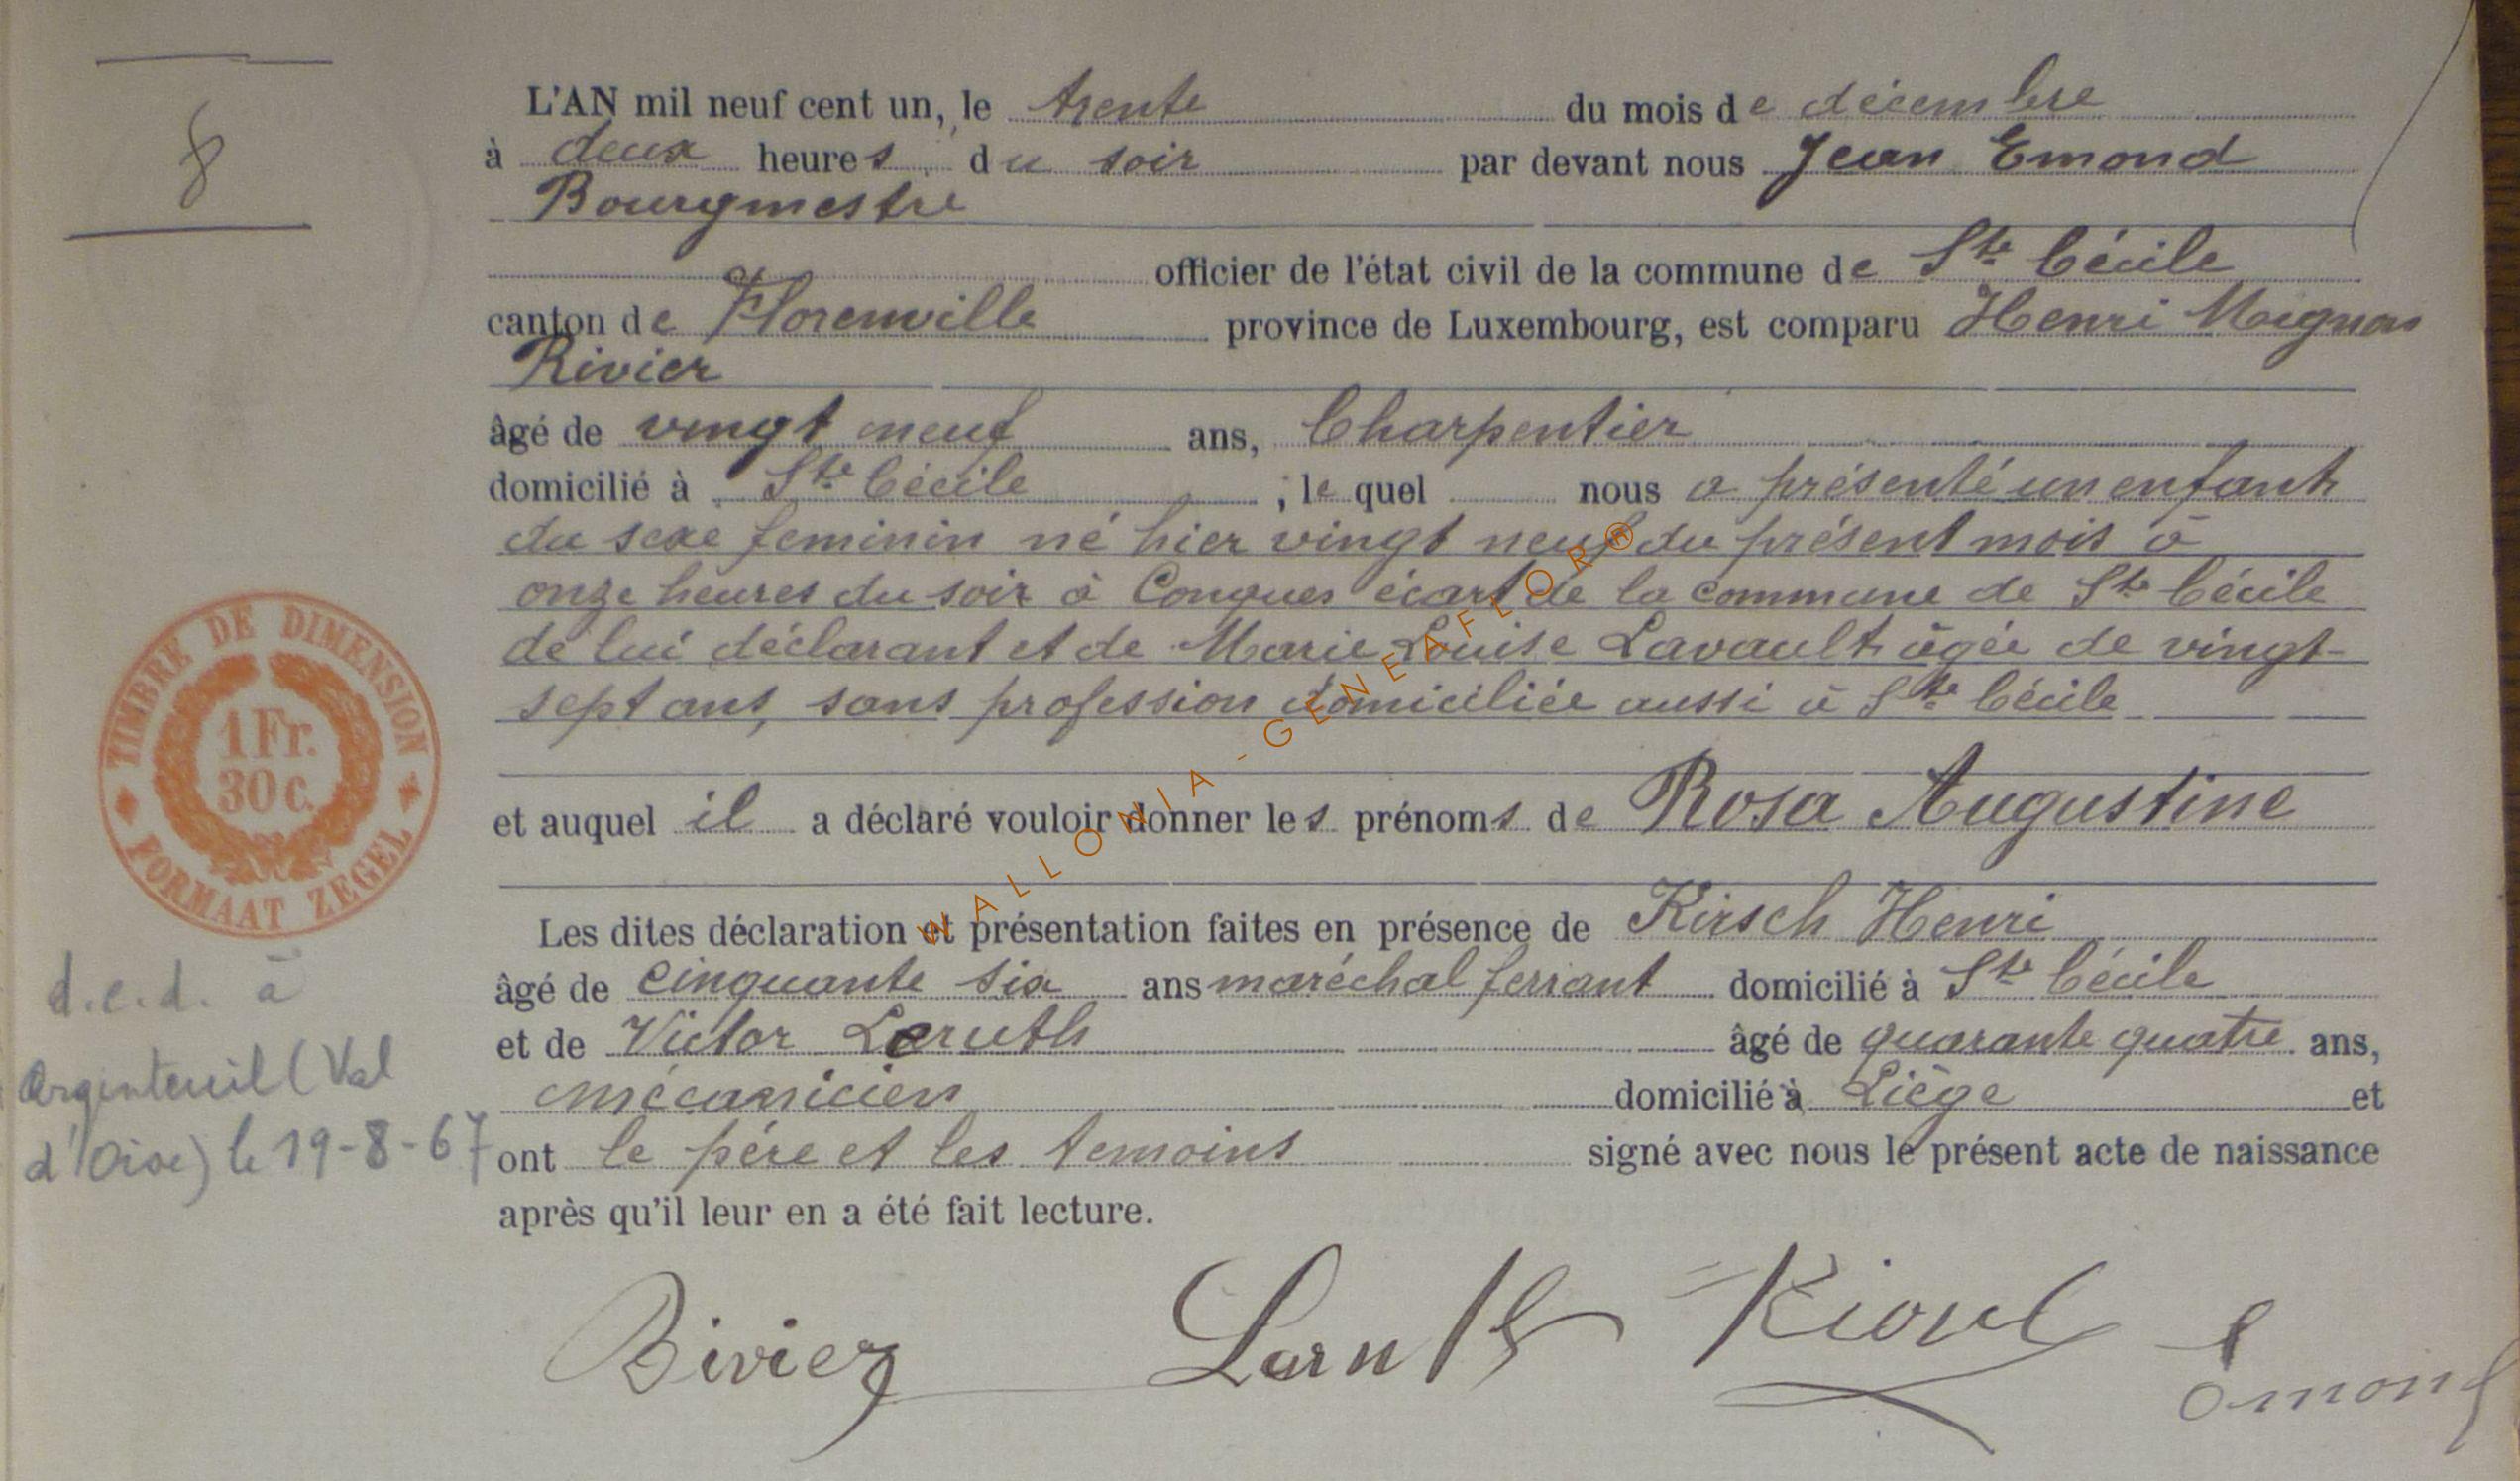 8
L'AN mil neuf cent un, le trente du mois de décembre
à deux heures du soir par devant nous Jean Emond
Bourgmestre
officier de l'état civil de la commune de Ste Cécile
canton de Florenville province de Luxembourg, est comparu Henri
Rivier
âgé de vingt neuf ans, Charpentier
domicilié à Ste Cécile ; le quel nous a présenté un enfant
du sexe feminin né hier vingt neuf du présent mois à
onze heures du soir à Conques écart de la commune de Ste Cécile
de lui déclarant et de Marie Louise Lavault âgée de vingt-
sept ans, sans profession domiciliée aussi à Ste Cécile
et auquel il a déclaré vouloir donner les prénoms de Rosa Augustine
Les dites déclaration et présentation faites en présence de Kirsch Henri
âgé de cinquante six ans maréchal ferrant domicilié à Ste Cécile
et de Victor Leruth âgé de quarante quatre ans,
mécanicien domicilié à Liège et
ont le père et les temoins signé avec nous le présent acte de naissance
après qu'il leur en a été fait lecture.
Rivier Leruth Kirsch Emond
TIMBRE DE DIMENSION
1 Fr.
30 c.
FORMAAT ZEGEL
d.c.d. à
Argenteuil (Val
d'Oise) le 19-8-67
WALLONIA - GENEAFLOR®